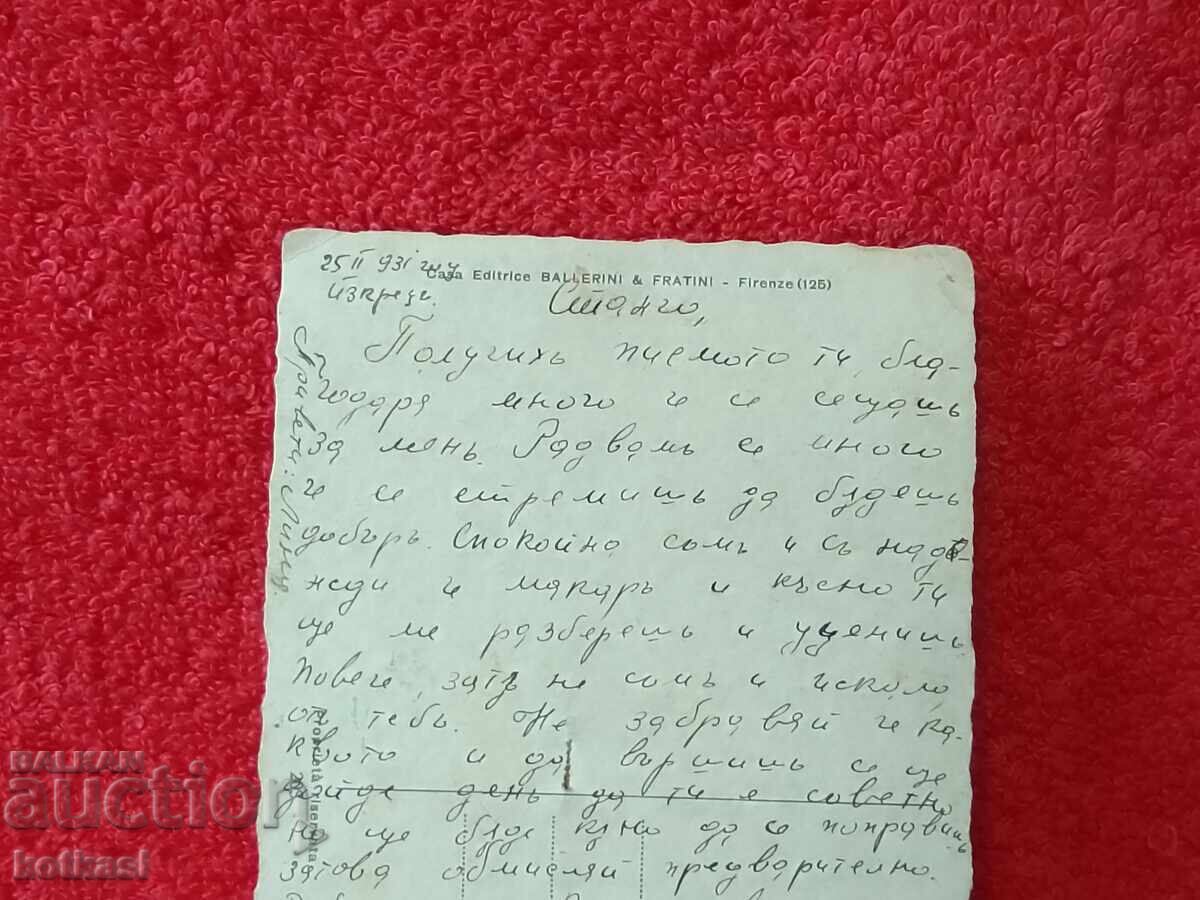 25 II 931 год
Искрец.
Casa Editrice BALLERINI & FRATINI - Firenze (125)
Станчо,
Получихъ писмото ти, бла-
годаря много че се сещашъ
за менъ. Радвамъ се много
че се стремишъ да бѫдешъ
добъръ. Спокойна съмъ и съ надѣ-
жди че макаръ и късно ти
ще ме разберешъ и уцѣнишъ
повече, затѫ не съмъ и искала
отъ тебъ. Не забравяй че ка-
квото и да вършишъ се ще
дойде день да ти е съвестно
но ще бѫде късно да се поправишъ
затова обмисляй предварително.
Приветъ:
Proprietà riservata
BALKAN
auction
kotkasi